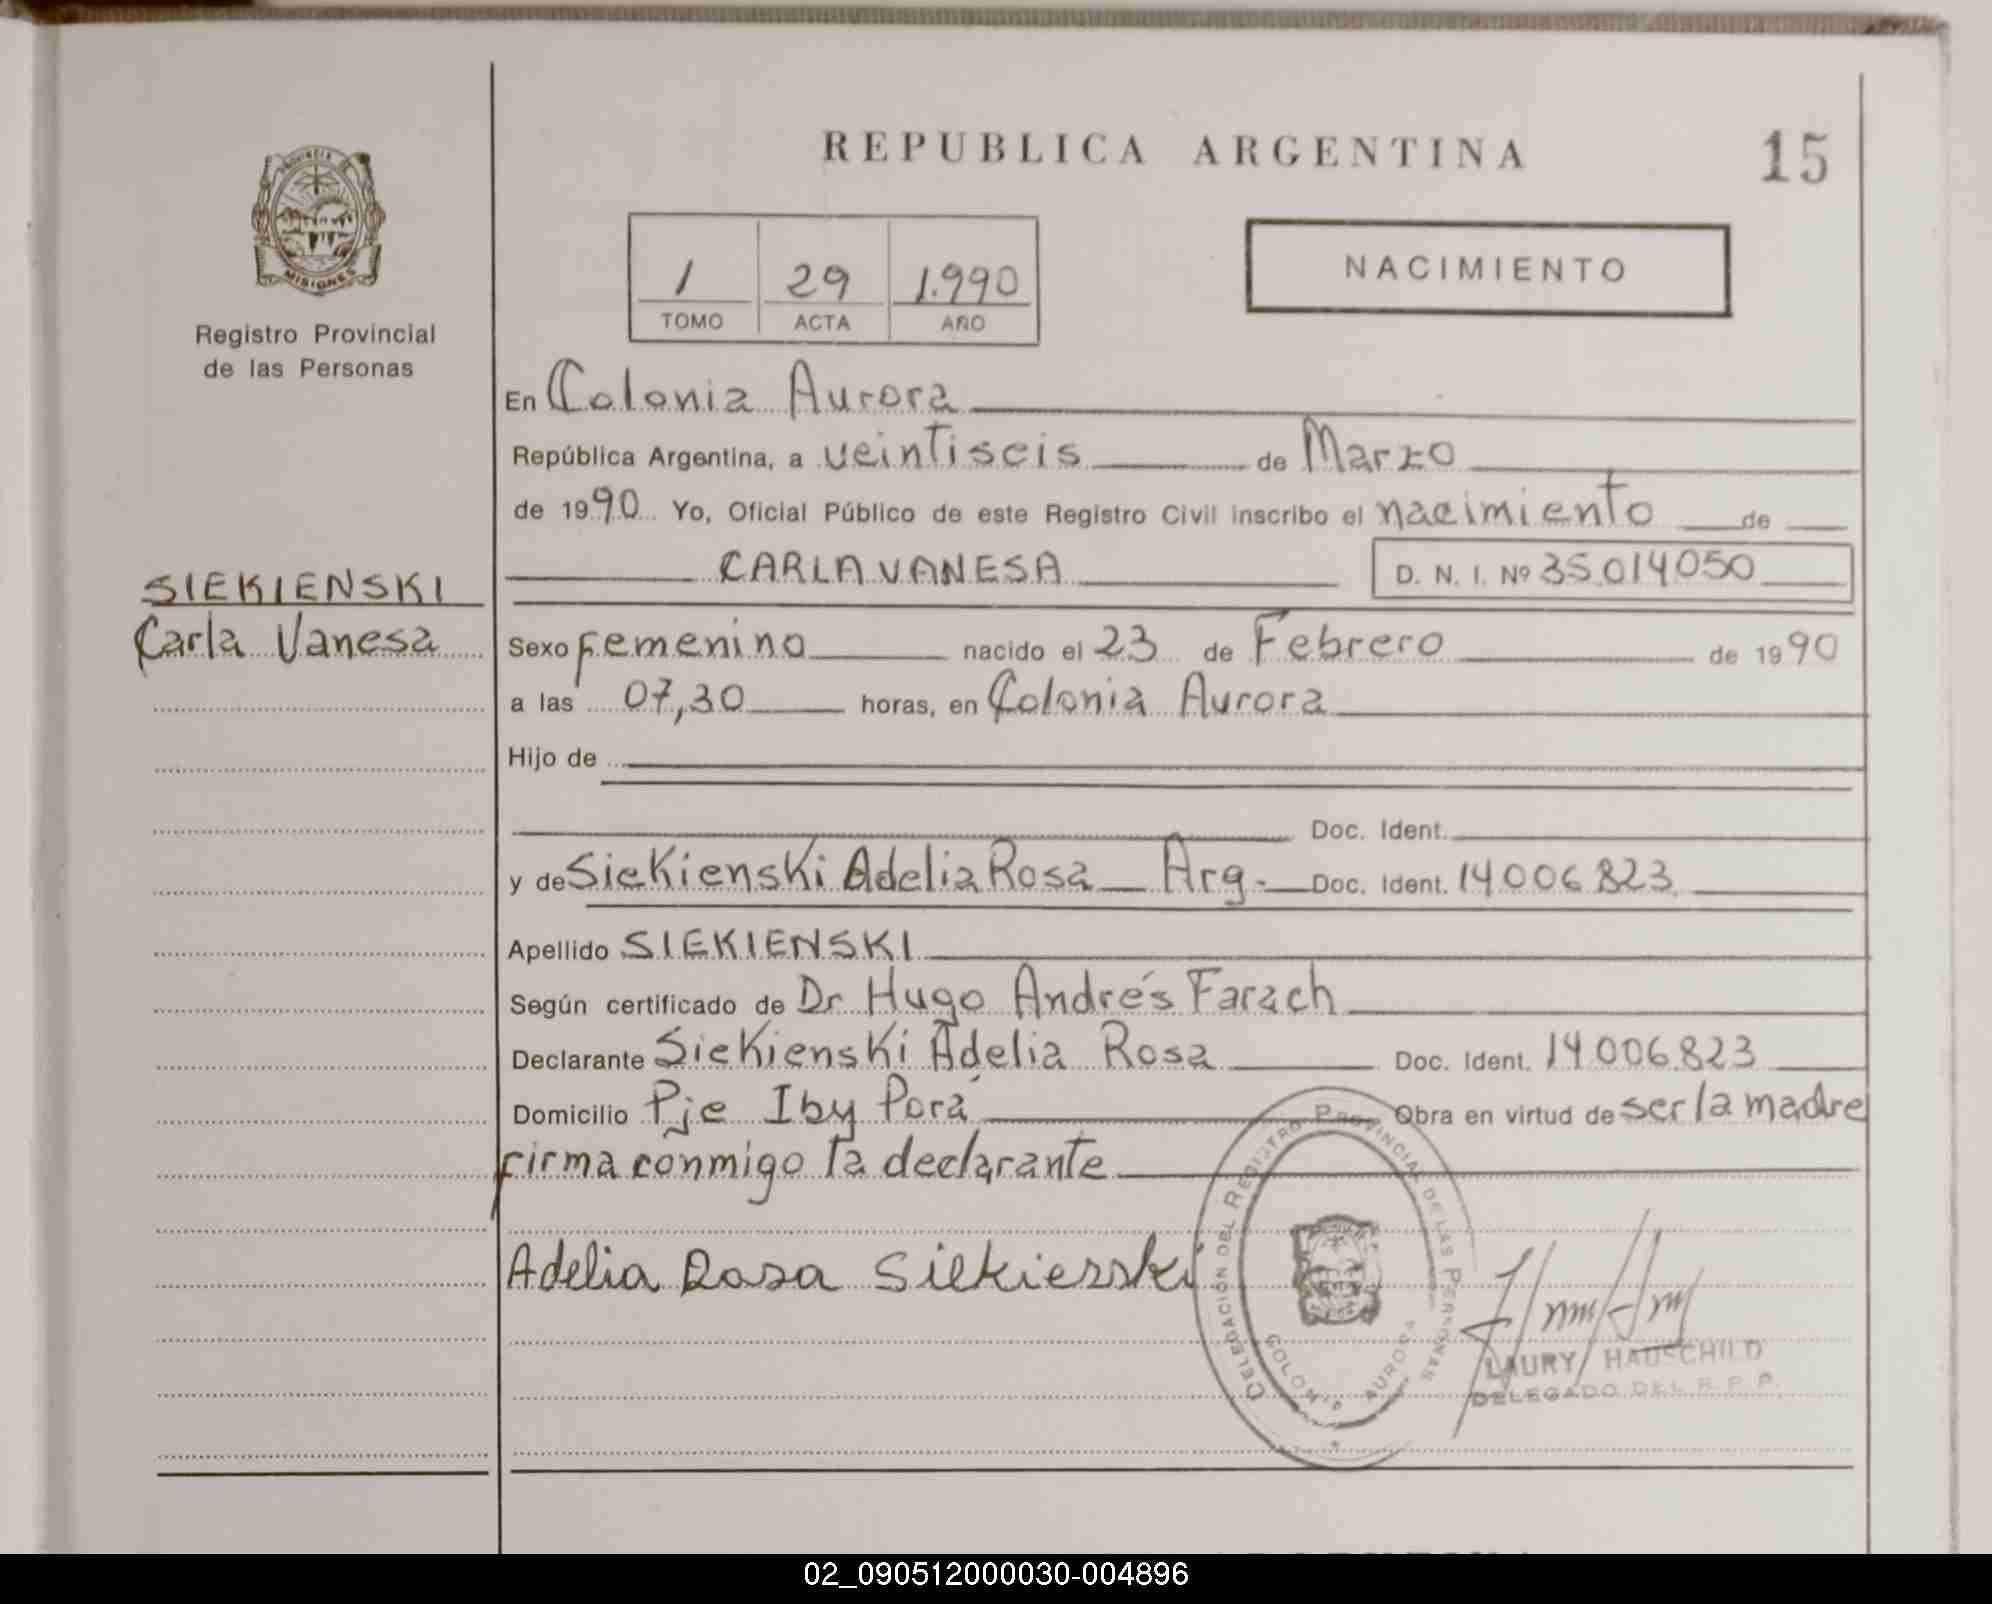 REPUBLICA ARGENTINA
15
PROVINCIA DE MISIONES
Registro Provincial
de las Personas
1 29 1.990
TOMO ACTA AÑO
NACIMIENTO
En Colonia Aurora
República Argentina, a veintiseis de Marzo
de 1990 Yo, Oficial Público de este Registro Civil inscribo el nacimiento de
CARLA VANESA D. N. I. Nº 35.014050
SIEKIENSKI
Carla Vanesa
Sexo femenino nacido el 23 de Febrero de 1990
a las 07,30 horas, en Colonia Aurora
Hijo de
Doc. Ident.
y de Siekienski Adelia Rosa Arg. Doc. Ident. 14006823
Apellido SIEKIENSKI
Según certificado de Dr Hugo Andrés Farach
Declarante Siekienski Adelia Rosa Doc. Ident. 14006.823
Domicilio Pje Iby Porá Obra en virtud de ser la madre
firma conmigo la declarante
Adelia Rosa Siekierski
DELEGACIÓN DEL REGISTRO PROVINCIAL DE LAS PERSONAS
COLONIA AURORA
LAURY HAUSCHILD
DELEGADO DEL R. P. P.
02_090512000030-004896